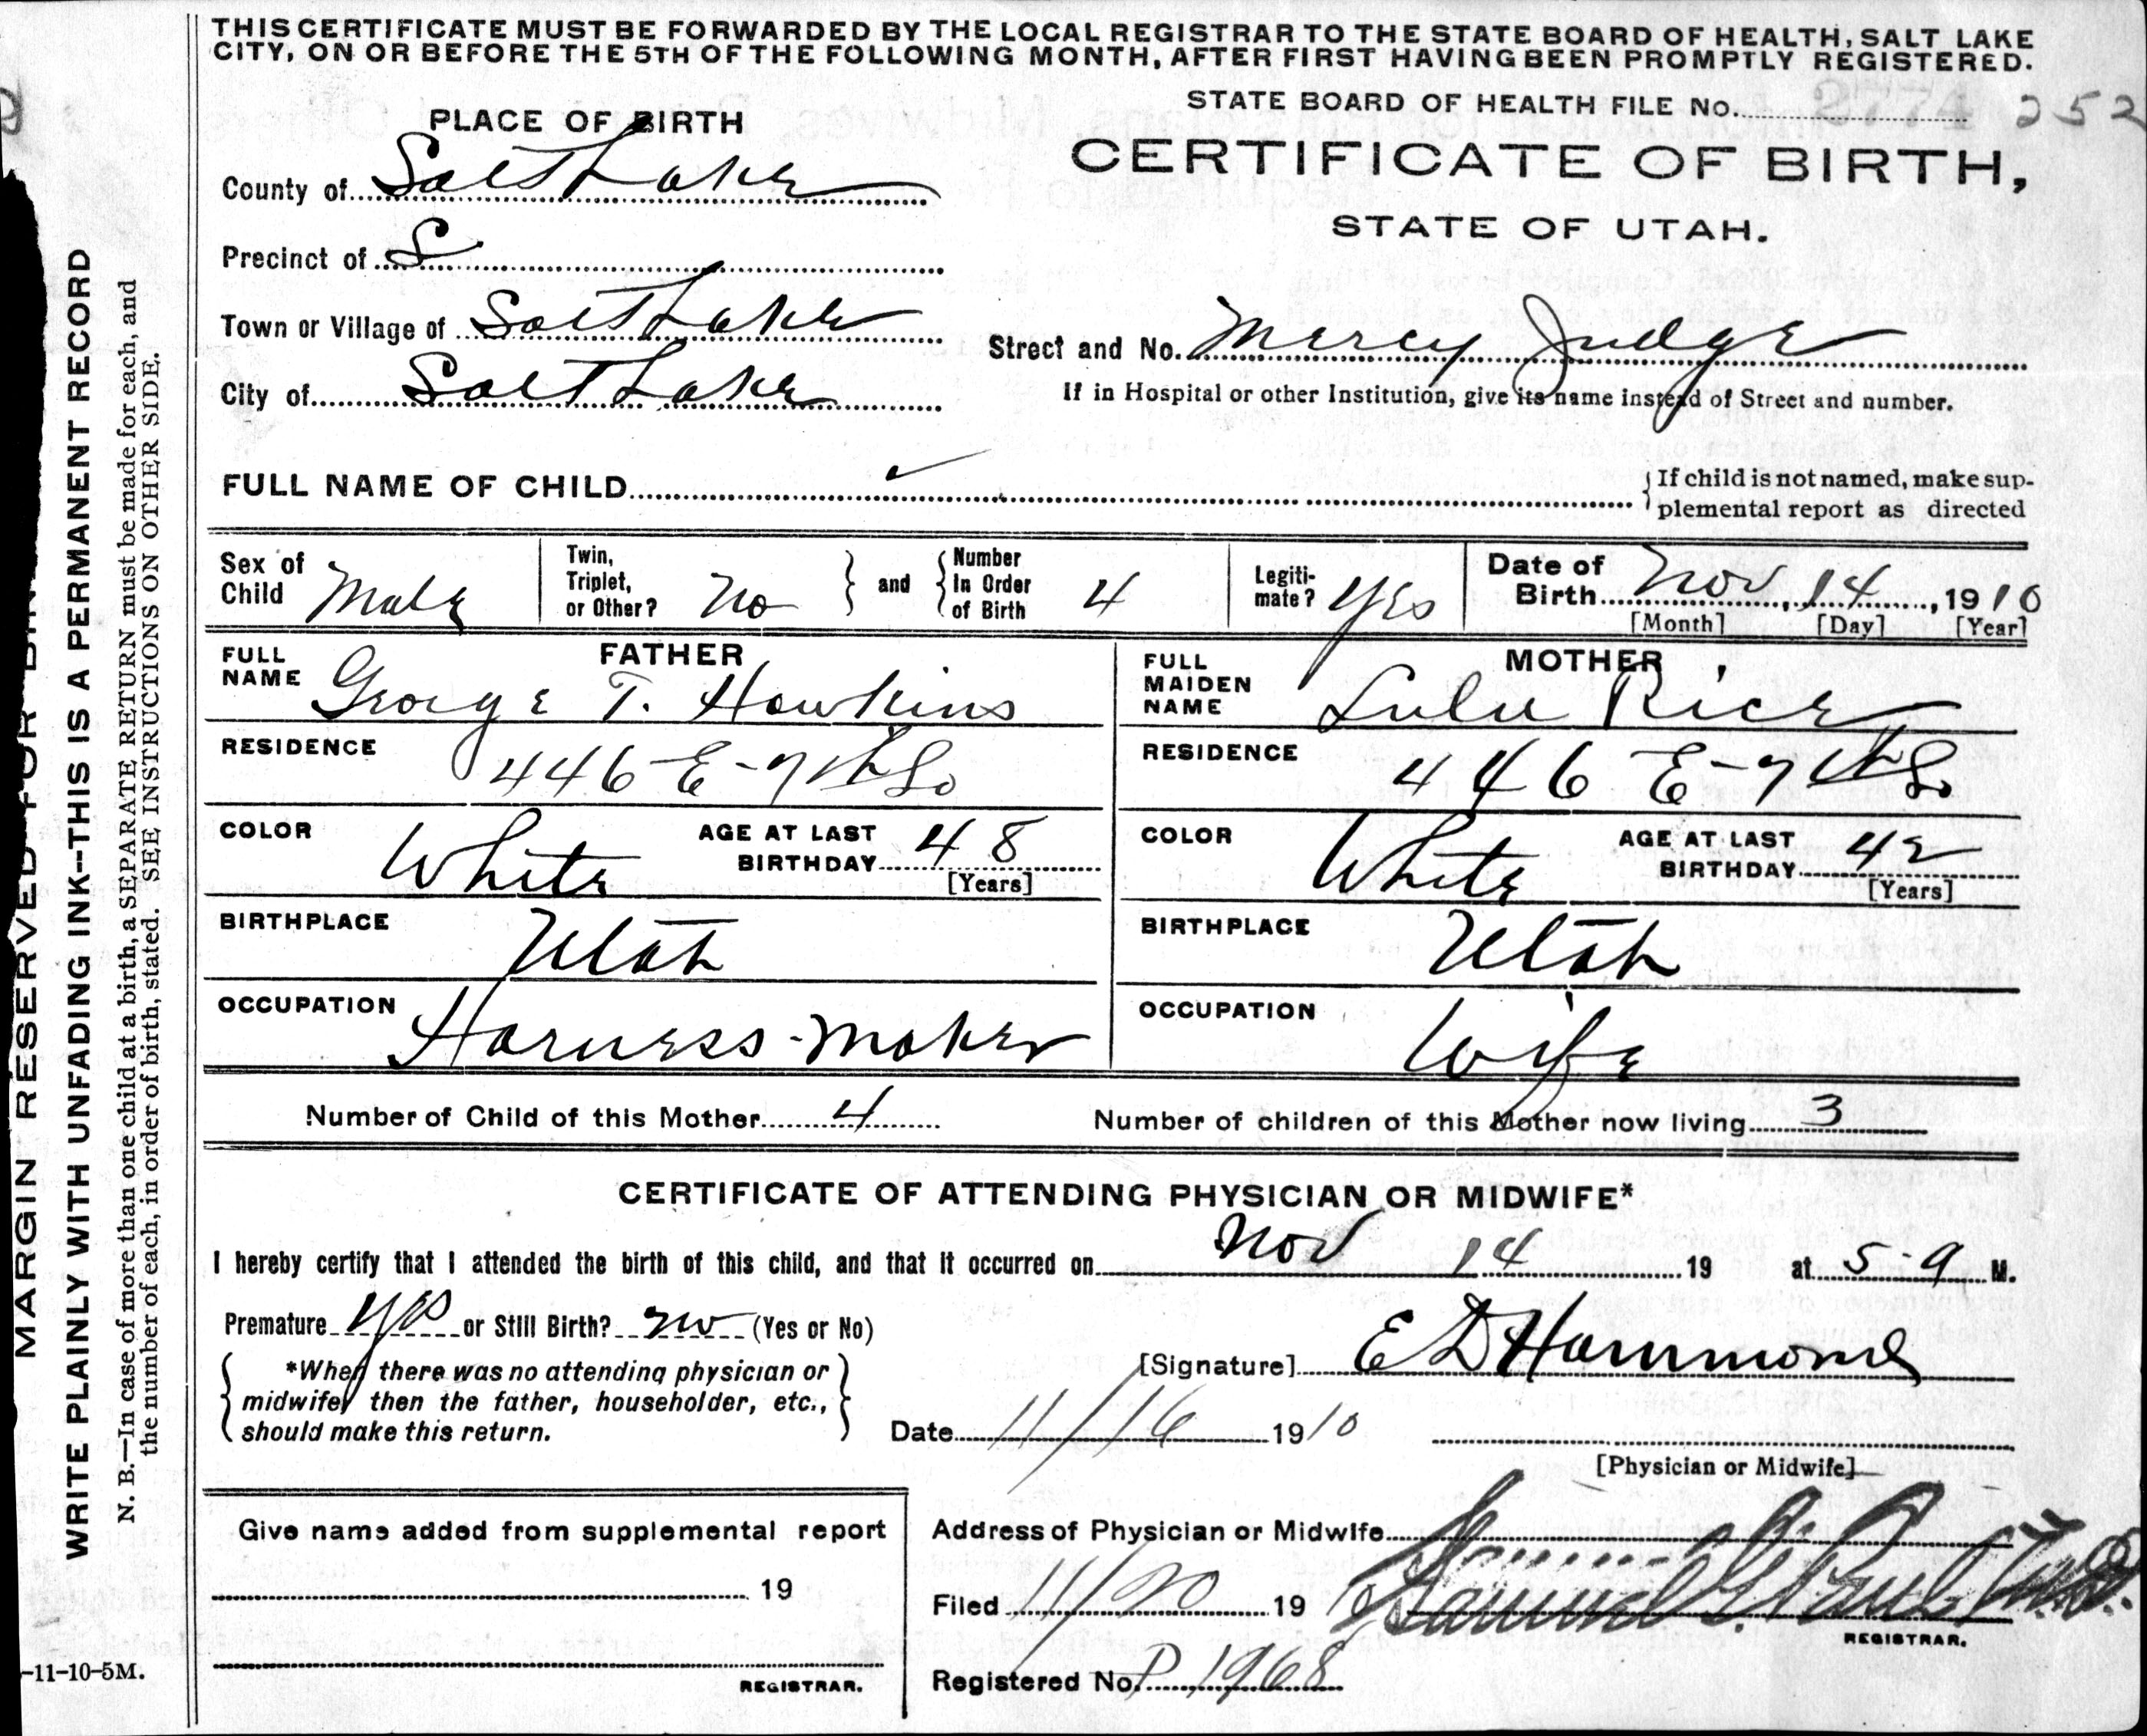 THIS CERTIFICATE MUST BE FORWARDED BY THE LOCAL REGISTRAR TO THE STATE BOARD OF HEALTH, SALT LAKE
CITY, ON OR BEFORE THE 5TH OF THE FOLLOWING MONTH, AFTER FIRST HAVING BEEN PROMPTLY REGISTERED.
STATE BOARD OF HEALTH FILE No. 2774 252
PLACE OF BIRTH
CERTIFICATE OF BIRTH,
STATE OF UTAH.
County of Salt Lake
Precinct of S
Town or Village of Salt Lake
Street and No. Mercy Judge
City of Salt Lake
If in Hospital or other Institution, give its name instead of Street and number.
FULL NAME OF CHILD
If child is not named, make sup-
plemental report as directed
Sex of Child Male
Twin, Triplet, or Other? No
and Number In Order of Birth 4
Legiti-mate? Yes
Date of Birth Nov, 14, 1910
[Month] [Day] [Year]
FATHER
FULL NAME George T. Hawkins
RESIDENCE 446 E-7th So
COLOR White AGE AT LAST BIRTHDAY 48
[Years]
BIRTHPLACE Utah
OCCUPATION Harness-maker
MOTHER
FULL MAIDEN NAME Lulu Rice
RESIDENCE 446 E-7th So
COLOR White AGE AT LAST BIRTHDAY 42
[Years]
BIRTHPLACE Utah
OCCUPATION Wife
Number of Child of this Mother 4 Number of children of this Mother now living 3
CERTIFICATE OF ATTENDING PHYSICIAN OR MIDWIFE*
I hereby certify that I attended the birth of this child, and that it occurred on Nov 14 19 at 5-9 M.
Premature yes or Still Birth? no (Yes or No)
*When there was no attending physician or
midwife, then the father, householder, etc.,
should make this return.
[Signature] E D Hammond
Date 11/16 1910
[Physician or Midwife]
Give name added from supplemental report
19
REGISTRAR.
Address of Physician or Midwife
Filed 11/20 1910 Samuel G. Paul
REGISTRAR.
Registered No. P 1968
MARGIN RESERVED FOR
WRITE PLAINLY WITH UNFADING INK--THIS IS A PERMANENT RECORD
N. B.—In case of more than one child at a birth, a SEPARATE RETURN must be made for each, and
the number of each, in order of birth, stated. SEE INSTRUCTIONS ON OTHER SIDE.
-11-10-5M.